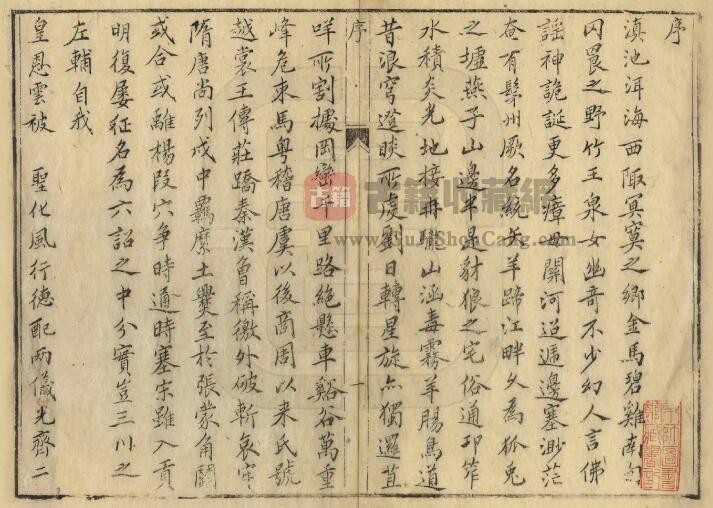 序
滇池洱海西陬冥寞之鄉金馬碧雞南勾
罔罠之野竹王泉女幽奇不少幻人言佛
謡神詭誕更多瘴母關河迢遞邊塞渺茫
奄有髳州厥名統矢羊蹄江畔久為狐兎
之墟燕子山邊半是豺狼之宅俗通邛笮
水積炎光地接冉駹山涵毒霧羊腸鳥道
昔浪穹邆睒所虔劉日轉星旋亦獨邏苴
序
一
咩所割據岡巒千里路絶懸車谿谷萬重
峰危束馬粤稽唐虞以後商周以来氏號
越裳王傳莊蹻秦漢曾稱徼外破斬哀牢
隋唐尚列戍中羈縻土爨至於張蒙角闘
或合或離楊段穴争時通時塞宋雖入貢
明復屡征名為六詔之中分實豈三川之
左輔自我
皇恩雲被 聖化風行德配兩儀光齊二
古籍
古籍收藏網
www.GuJiShouCang.com